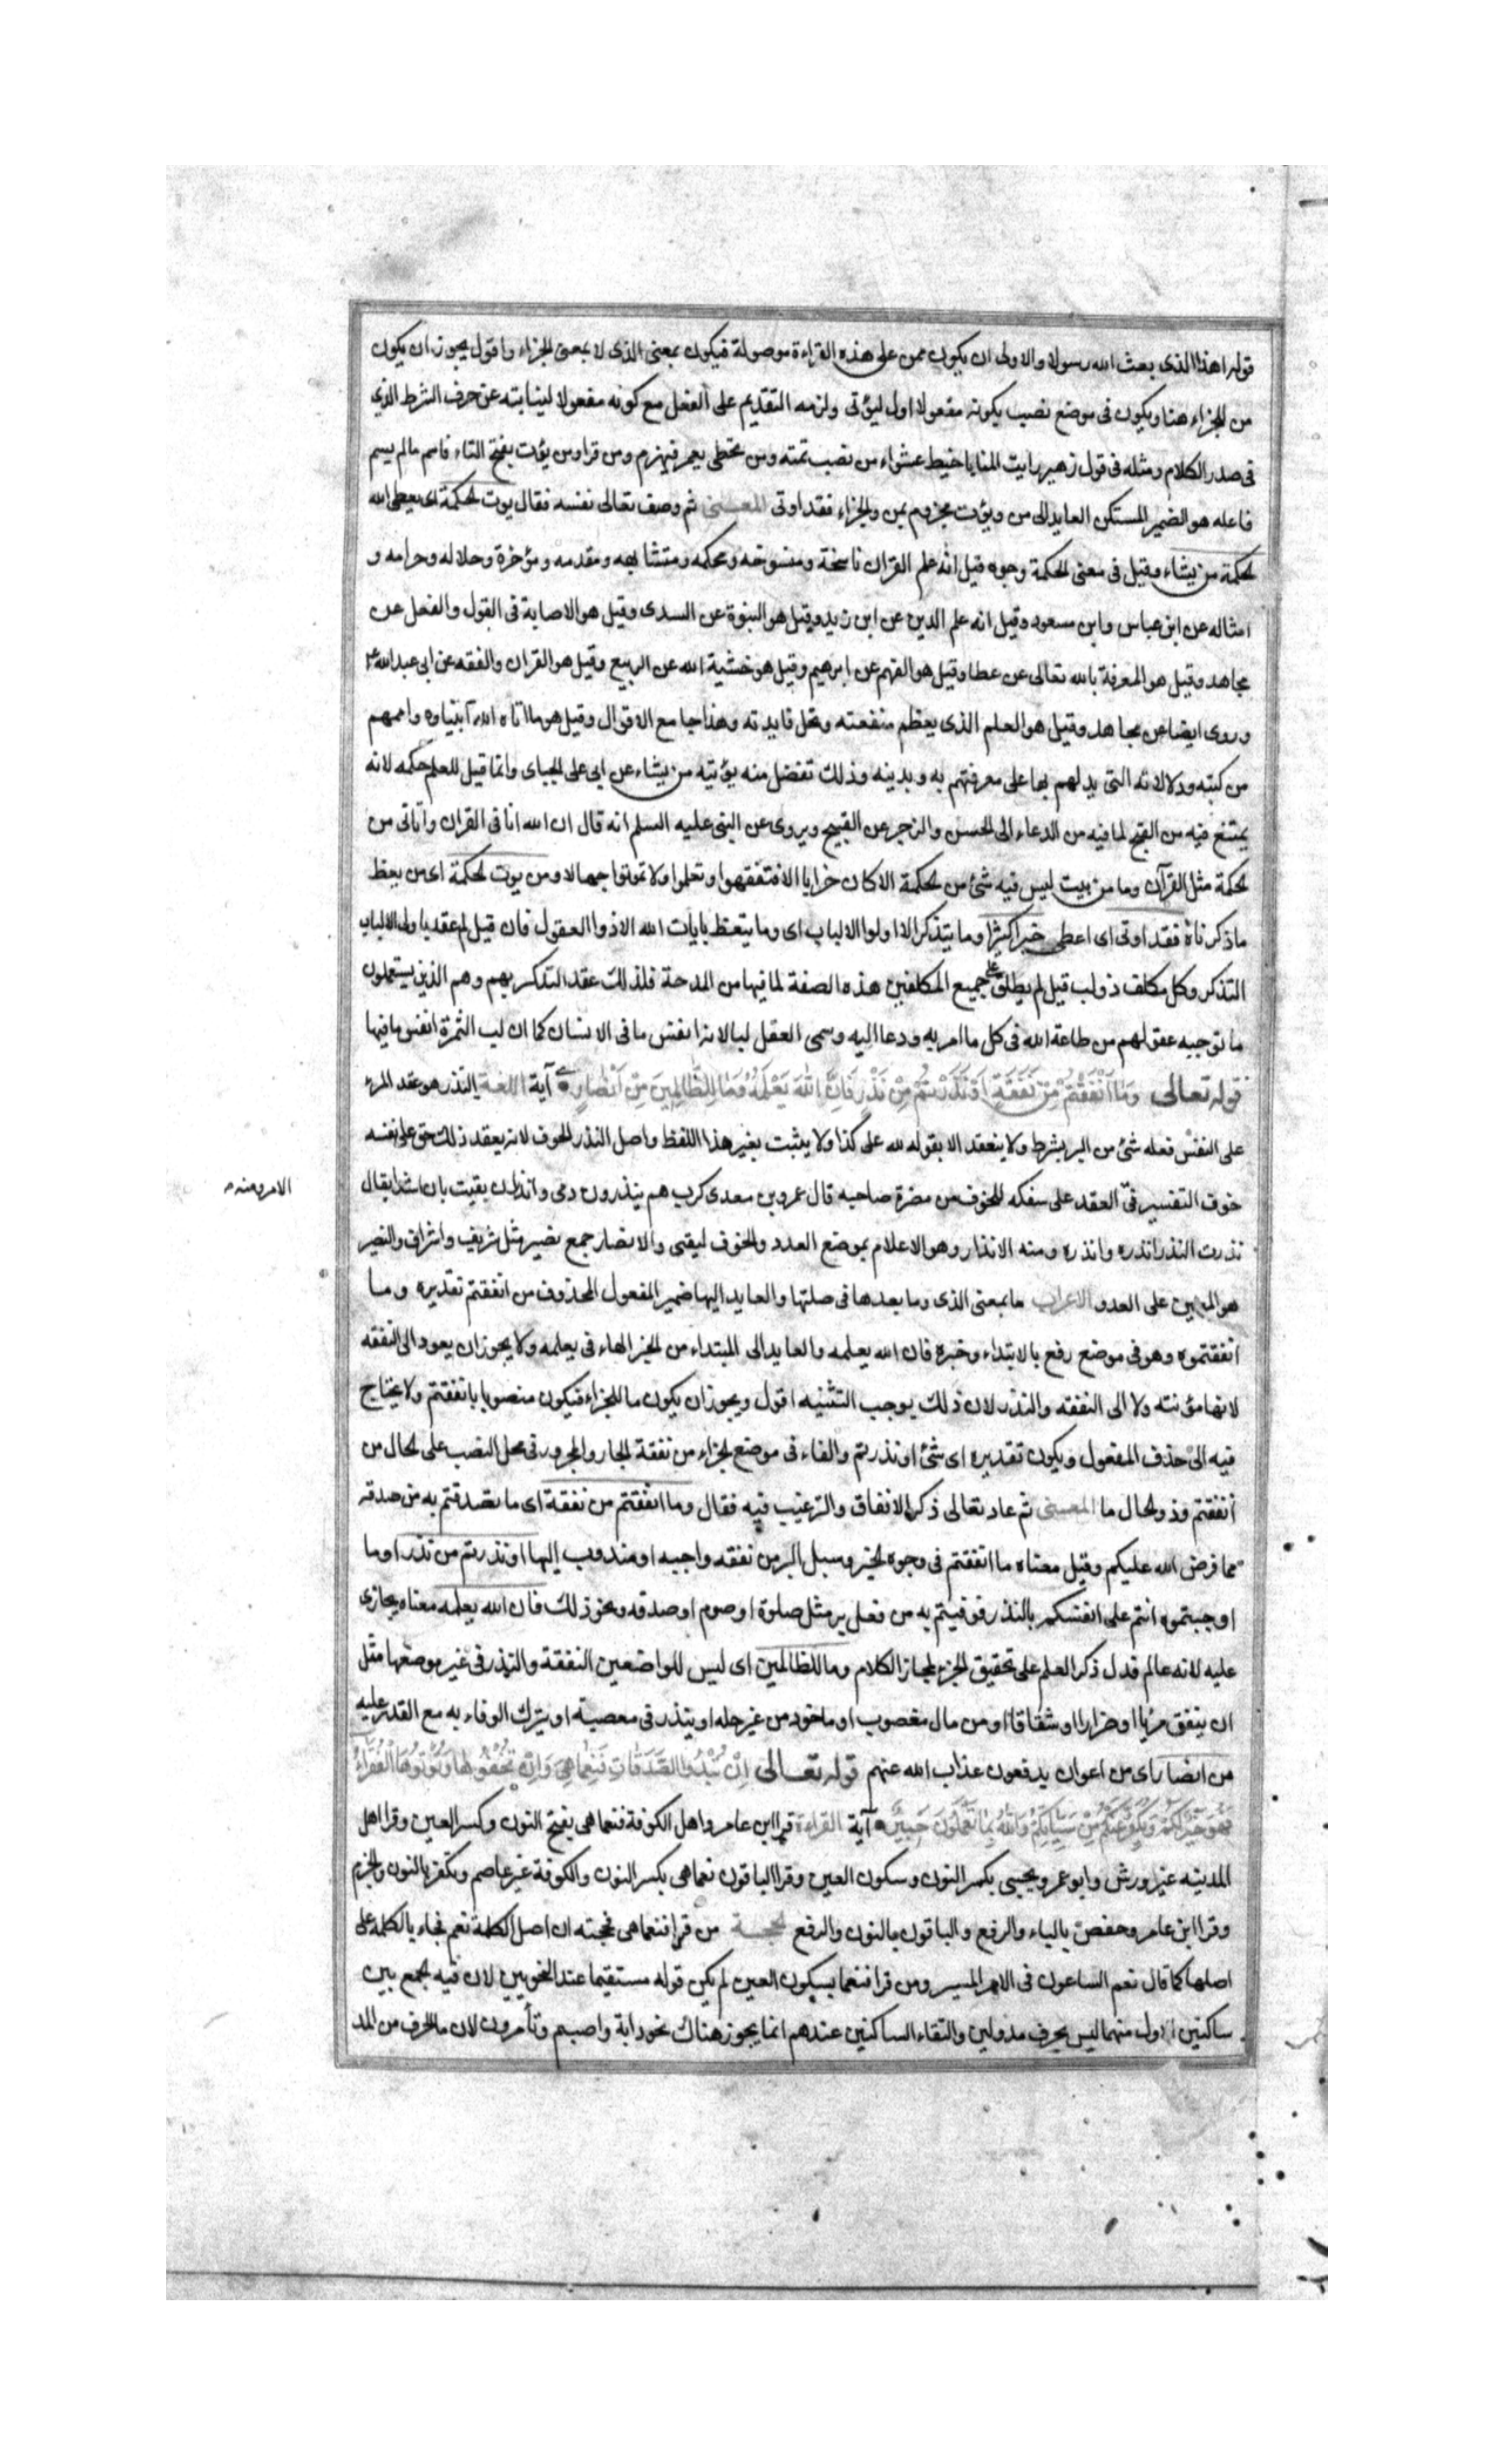 قوله اهذا الذى بعث الله رسولا والاولى ان يكون من على هذه القراءة موصولة فيكون بمعنى الذى لا بمعنى الجزاء واقول يجوز ان يكون
من للجزاء هنا ويكون فى موضع نصب بكونه مفعولا اول ليؤتى ولزمه التقديم على الفعل مع كونه مفعولا لنيابته عن حرف الشرط الذى
فى صدر الكلام ومثله فى قول زهير رايت المنايا خبط عشواء من تصب تمته ومن تخطى يعمر فيهرم ومن قرا ومن يؤت بفتح التاء فاسم مالم يسم
فاعله هو الضمير المستكن العايد الى من ويؤت مجزوم بمن والجزاء فقد اوتى المعنى ثم وصف تعالى نفسه فقال يوت الحكمة اى يعطى الله
الحكمة من يشاء وقيل فى معنى الحكمة وجوه قيل انه علم القران ناسخة ومنسوخه ومحكمه ومتشابهه ومقدمه ومؤخرة وحلاله وحرامه و
امثاله عن ابن عباس وابن مسعود وقيل انه علم الدين عن ابن زيد وقيل هو النبوة عن السدى وقيل هو الاصابة فى القول والفعل عن
مجاهد وقيل هو المعرفة بالله تعالى عن عطا وقيل هو الفهم عن ابرهيم وقيل هو خشية الله عن الربيع وقيل هو القران والفقه عن ابى عبد الله ع
وروى ايضا عن مجاهد وقيل هو العلم الذى يعظم منفعته وتجل فايدته وهذا جامع الاقوال وقيل هو ما اتاه الله انبياوه واممهم
من كتبه ودلالاته التى يدلهم بها على معرفتهم به وبدينه وذلك تفضل منه يؤتيه من يشاء عن ابى على الجباى وانما قيل للعلم حكمه لانه
يمتنع فيه من القبح لما فيه من الدعاء الى الحسن والزجر عن القبيح ويروى عن النبى عليه السلم انه قال ان الله اتانى القران واتانى من
الحكمة مثل القرآن وما من بيت ليس فيه شئ من الحكمة الا كان خرابا الا فتفقهوا وتعلموا ولا تموتوا جهالا ومن يوت الحكمة اى من يعظ
ما ذكرناه فقد اوتى اى اعطى خيرا كثيرا وما يتذكر الا اولوا الالباب اى وما يتعظ بايات الله الا ذوا العقول فان قيل لم عقد باولى الالباب
التذكر وكل مكلف ذو لب قيل لم يطلق على جميع المكلفين هذه الصفة لما فيها من المدحة فلذلك عقد التذكر بهم وهم الذين يستعملون
ما توجبه عقولهم من طاعة الله فى كل ما امر به ودعا اليه وسمى العقل لبا لانه انفس ما فى الانسان كما ان لب الثمرة انفس ما فيها
قوله تعالى وَمَا اَنْفَقْتُمْ مِنْ نَفَقَةٍ اَوْ نَذَرْتُمْ مِنْ نَذْرٍ فَاِنَّ اللهَ يَعْلَمُهُ وَمَا لِلظَّالِمِينَ مِنْ اَنْصَارٍ آية اللغة النذر هو عقد المرء
على النفس فعله شئ من البر بشرط ولا ينعقد الا بقوله لله على كذا ولا يثبت بغير هذا اللفظ واصل النذر الخوف لانه يعقد ذلك حتى على نفسه
خوف التقصير فى العقد على سفكه للخوف من مضرة صاحبه قال عمرو بن معدى كرب هم ينذرون دمى وانذر ان بقيت بان اشدا يقال
نذرت النذر انذره وانذره ومنه الانذار وهو الاعلام بموضع العدو والخوف ليتقى والانصار جمع نصير مثل شريف واشراف والنصير
هو المعين على العدو الاعراب ما بمعنى الذى وما بعدها فى صلتها والعايد اليها ضمير المفعول المحذوف من انفقتم تقديره وما
انفقتموه وهو فى موضع رفع بالابتداء وخبره فان الله يعلمه والعايد الى المبتداء من الخبر الهاء فى يعلمه ولا يجوز ان يعود الى النفقه
لانها مؤنثه ولا الى النفقه والنذر لان ذلك يوجب التثنيه اقول ويجوز ان يكون ما للجزاء فيكون منصوبا بانفقتم ولا يحتاج
فيه الى حذف المفعول ويكون تقديره اى شئ او نذرتم والفاء فى موضع الجزاء من نفقة الجار والمجرور فى محل النصب على الحال من
انفقتم وذو الحال ما المعنى ثم عاد تعالى ذكر الانفاق والترغيب فيه فقال وما انفقتم من نفقة اى ما تصدقتم به من صدقه
مما فرض الله عليكم وقيل معناه ما انفقتم فى وجوه الخير وسبل البر من نفقه واجبه او مندوب اليها او نذرتم من نذر او ما
اوجبتموه انتم على انفسكم بالنذر فوفيتم به من فعل بر مثل صلوة او صوم او صدقه ونحو ذلك فان الله يعلمه معناه يجازى
عليه لانه عالم فدل ذكر العلم على تحقيق الجزء ايجاز الكلام وما للظالمين اى ليس للواضعين النفقة والنذر فى غير موضعها مثل
ان ينفق مرئيا او ضرارا او شقاقا او من مال مغصوب او ماخوذ من غير حله او ينذر فى معصية او يترك الوفاء به مع القدر عليه
من انصار اى من اعوان يدفعون عذاب الله عنهم قوله تعالى اِنْ تُبْدُوا الصَّدَقَاتِ فَنِعِمَّا هِىَ وَاِنْ تُخْفُوهَا وَتُؤْتُوهَا الْفُقَرَاءَ
فَهُوَ خَيْرٌ لَكُمْ وَيُكَفِّرُ عَنْكُمْ مِنْ سَيِّئَاتِكُمْ وَاللهُ بِمَا تَعْمَلُونَ خَبِيرٌ آية القراءة قرا ابن عامر واهل الكوفة فنعما هى بفتح النون وكسر العين وقرا اهل
المدينه غير ورش وابو عمرو يحيى بكسر النون وسكون العين وقرا الباقون نعما هى بكسر النون والكوفة غير عاصم ونكفر بالنون والجزم
وقرا ابن عامر وحفص بالياء والرفع والباقون بالنون والرفع الحجة من قرا فنعما هى فحجته ان اصل الكلمة نعم فجاء بالكلمة على
اصلها كما قال نعم الساعون فى الامر المبر ومن قرا فنعما بسكون العين لم يكن قوله مستقيما عند النحويين لان فيه الجمع بين
ساكنين الاول منهما ليس بحرف مد ولين والتقاء الساكنين عندهم انما يجوز هناك نحو دابة واصيم وتأمرون لان ما الحرف من المد